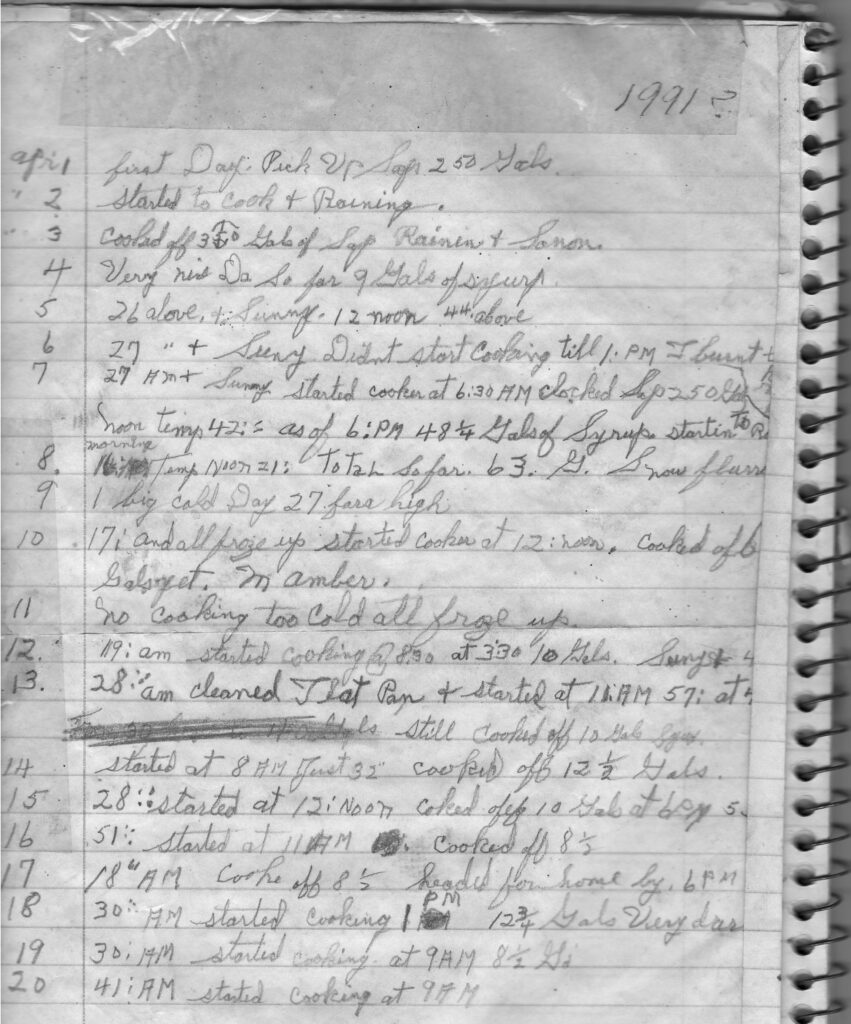 1991?
apri 1 first Day. Pick Up Sap 250 Gals.
" 2 started to cook + Raining.
" 3 cooked off Gals of Sap Rainin + Sonon.
4 Very Da So far 9 Gals of
5 26 above, + Sunny. 12 noon 44 above
6 27 " + Suny Didnt start Cooking till 1: PM I burnt
7 27 AM + Sunny started cooker at 6:30 AM clocked Sap 250
noon temp 42: as of 6: PM 48 1/4 Gals of Syrup startin to
morning
8. Temp Noon 21: ToTaL So far. 63. G. Snow flurr
9 1 big cold Day 27 fara high
10 17; and all froze up started cooker at 12: noon. cooked of 6
Gals yet. M amber.
11 No cooking too cold all froze up.
12. 19: am started cooking @ 8:30 at 3:30 10 Gals. Suny + 4
13. 28:" am cleaned Flat Pan + started at 11: AM 57: at
still cooked off 10 Gals
14 started at 8 AM Just 32" cooked off 12 1/2 Gals.
15 28:" started at 12: Noon coked off 10 Gals at 6 PM 5.
16 51: started at 11 AM cooked off 8 1/2
17 18" AM Cooke off 8 1/2 headed for home by. 6 PM
PM
18 30:" AM started cooking 1 12 3/4 Gals Very dar
19 30: AM started cooking at 9 AM 8 1/2 Gs
20 41: AM started cooking at 9 AM